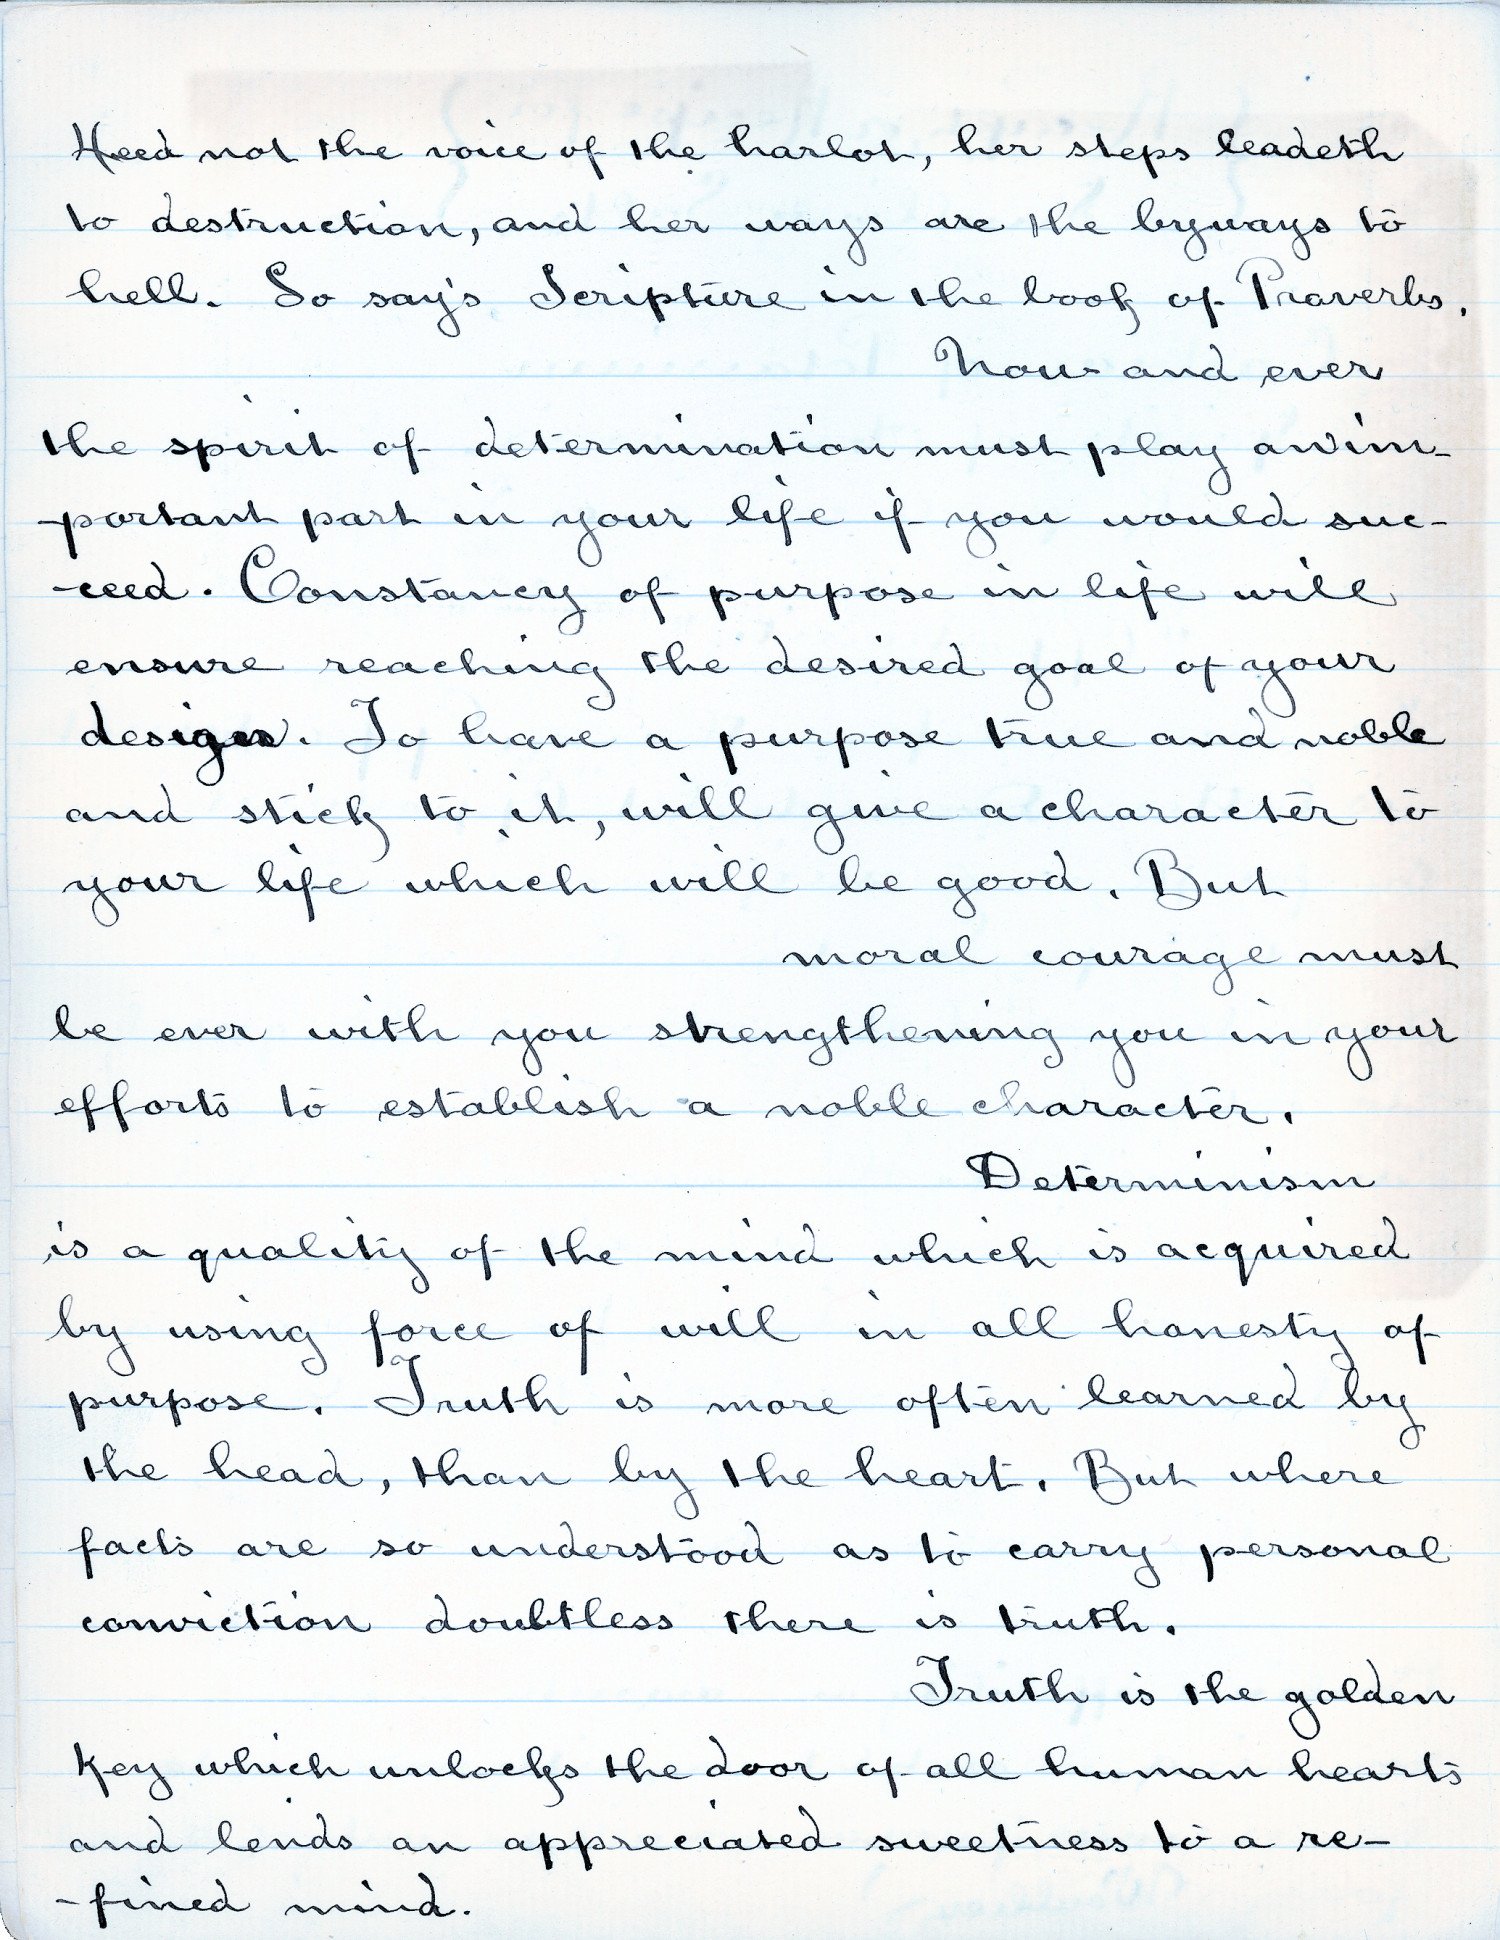 Heed not the voice of the harlot, her steps leadeth
to destruction, and her ways are the byways to
hell. So say's Scripture in the book of Proverbs.
Now and ever
the spirit of determination must play an im-
-portant part in your life if you would suc-
-ceed. Constancy of purpose in life will
ensure reaching the desired goal of your
design. To have a purpose true and noble
and stick to it, will give a character to
your life which will be good. But
moral courage must
be ever with you strengthening you in your
efforts to establish a noble character.
Determinism
is a quality of the mind which is acquired
by using force of will in all honesty of
purpose. Truth is more often learned by
the head, than by the heart. But where
facts are so understood as to carry personal
conviction doubtless there is truth.
Truth is the golden
key which unlocks the door of all human hearts
and lends an appreciated sweetness to a re-
-fined mind.